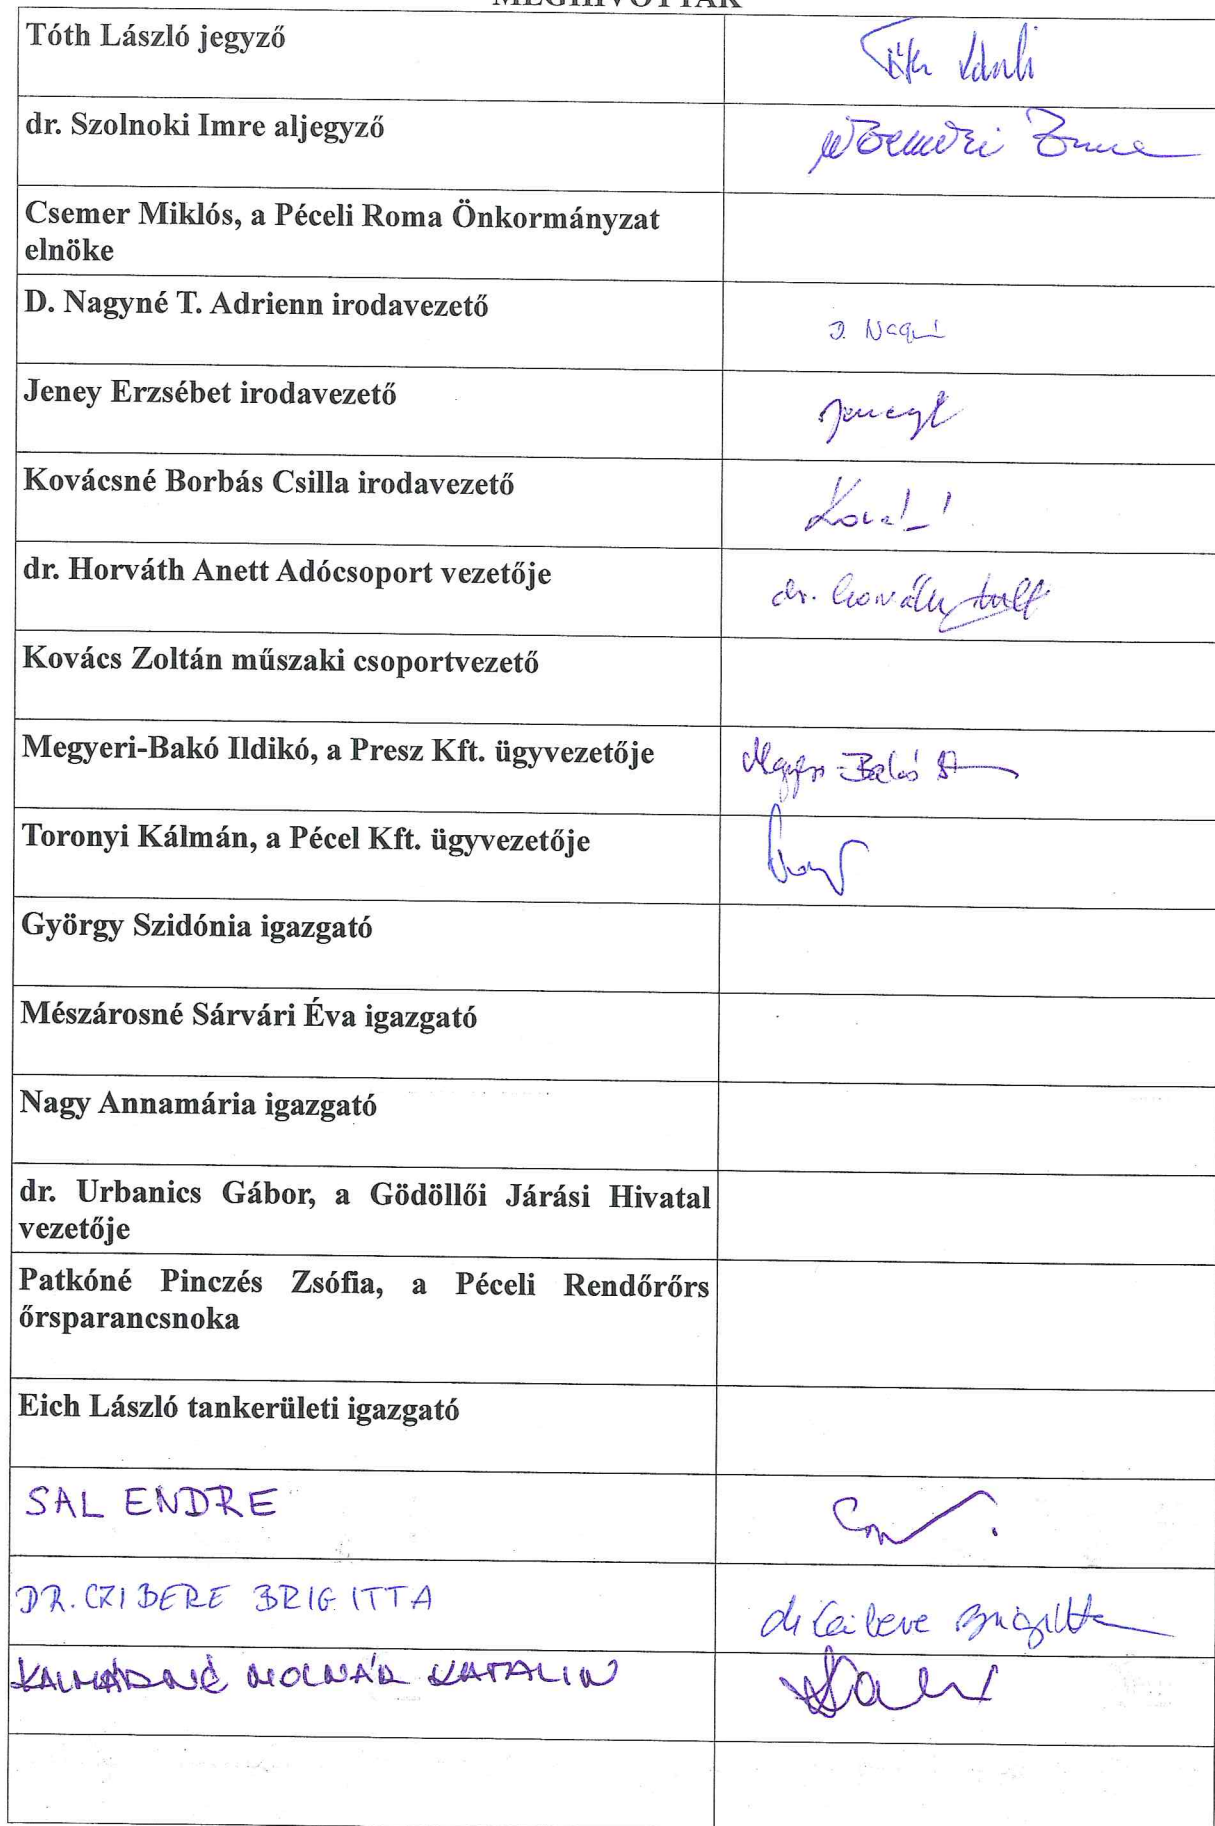 MEGHÍVOTTAK
Tóth László jegyző
dr. Szolnoki Imre aljegyző
Csemer Miklós, a Péceli Roma Önkormányzat
elnöke
D. Nagyné T. Adrienn irodavezető
D. Nagyné
Jeney Erzsébet irodavezető
Kovácsné Borbás Csilla irodavezető
dr. Horváth Anett Adócsoport vezetője
dr. Horváth Anett
Kovács Zoltán műszaki csoportvezető
Megyeri-Bakó Ildikó, a Presz Kft. ügyvezetője
Megyeri-Bakó
Toronyi Kálmán, a Pécel Kft. ügyvezetője
György Szidónia igazgató
Mészárosné Sárvári Éva igazgató
Nagy Annamária igazgató
dr. Urbanics Gábor, a Gödöllői Járási Hivatal
vezetője
Patkóné Pinczés Zsófia, a Péceli Rendőrőrs
őrsparancsnoka
Eich László tankerületi igazgató
SAL ENDRE
DR. CZIBERE BRIGITTA
dr Czibere Brigitta
KALMÁRNÉ MOLNÁR KATALIN